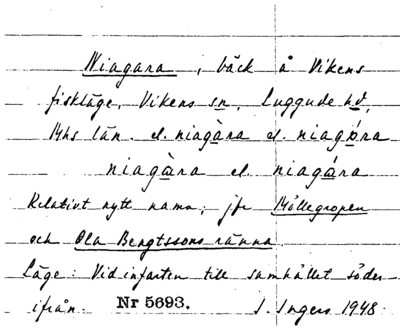 Niagara, bäck å Vikens
fiskläge, Vikens sn, Luggude hd,
Mhs län. el. niagàra el. niagára
niagàra el. niagára
Relativt nytt namn; jfr Möllegropen
och Ola Bengtssons ränna.
Läge: Vid infarten till samhället söder-
ifrån. Nr 5693. I. Ingers 1948.